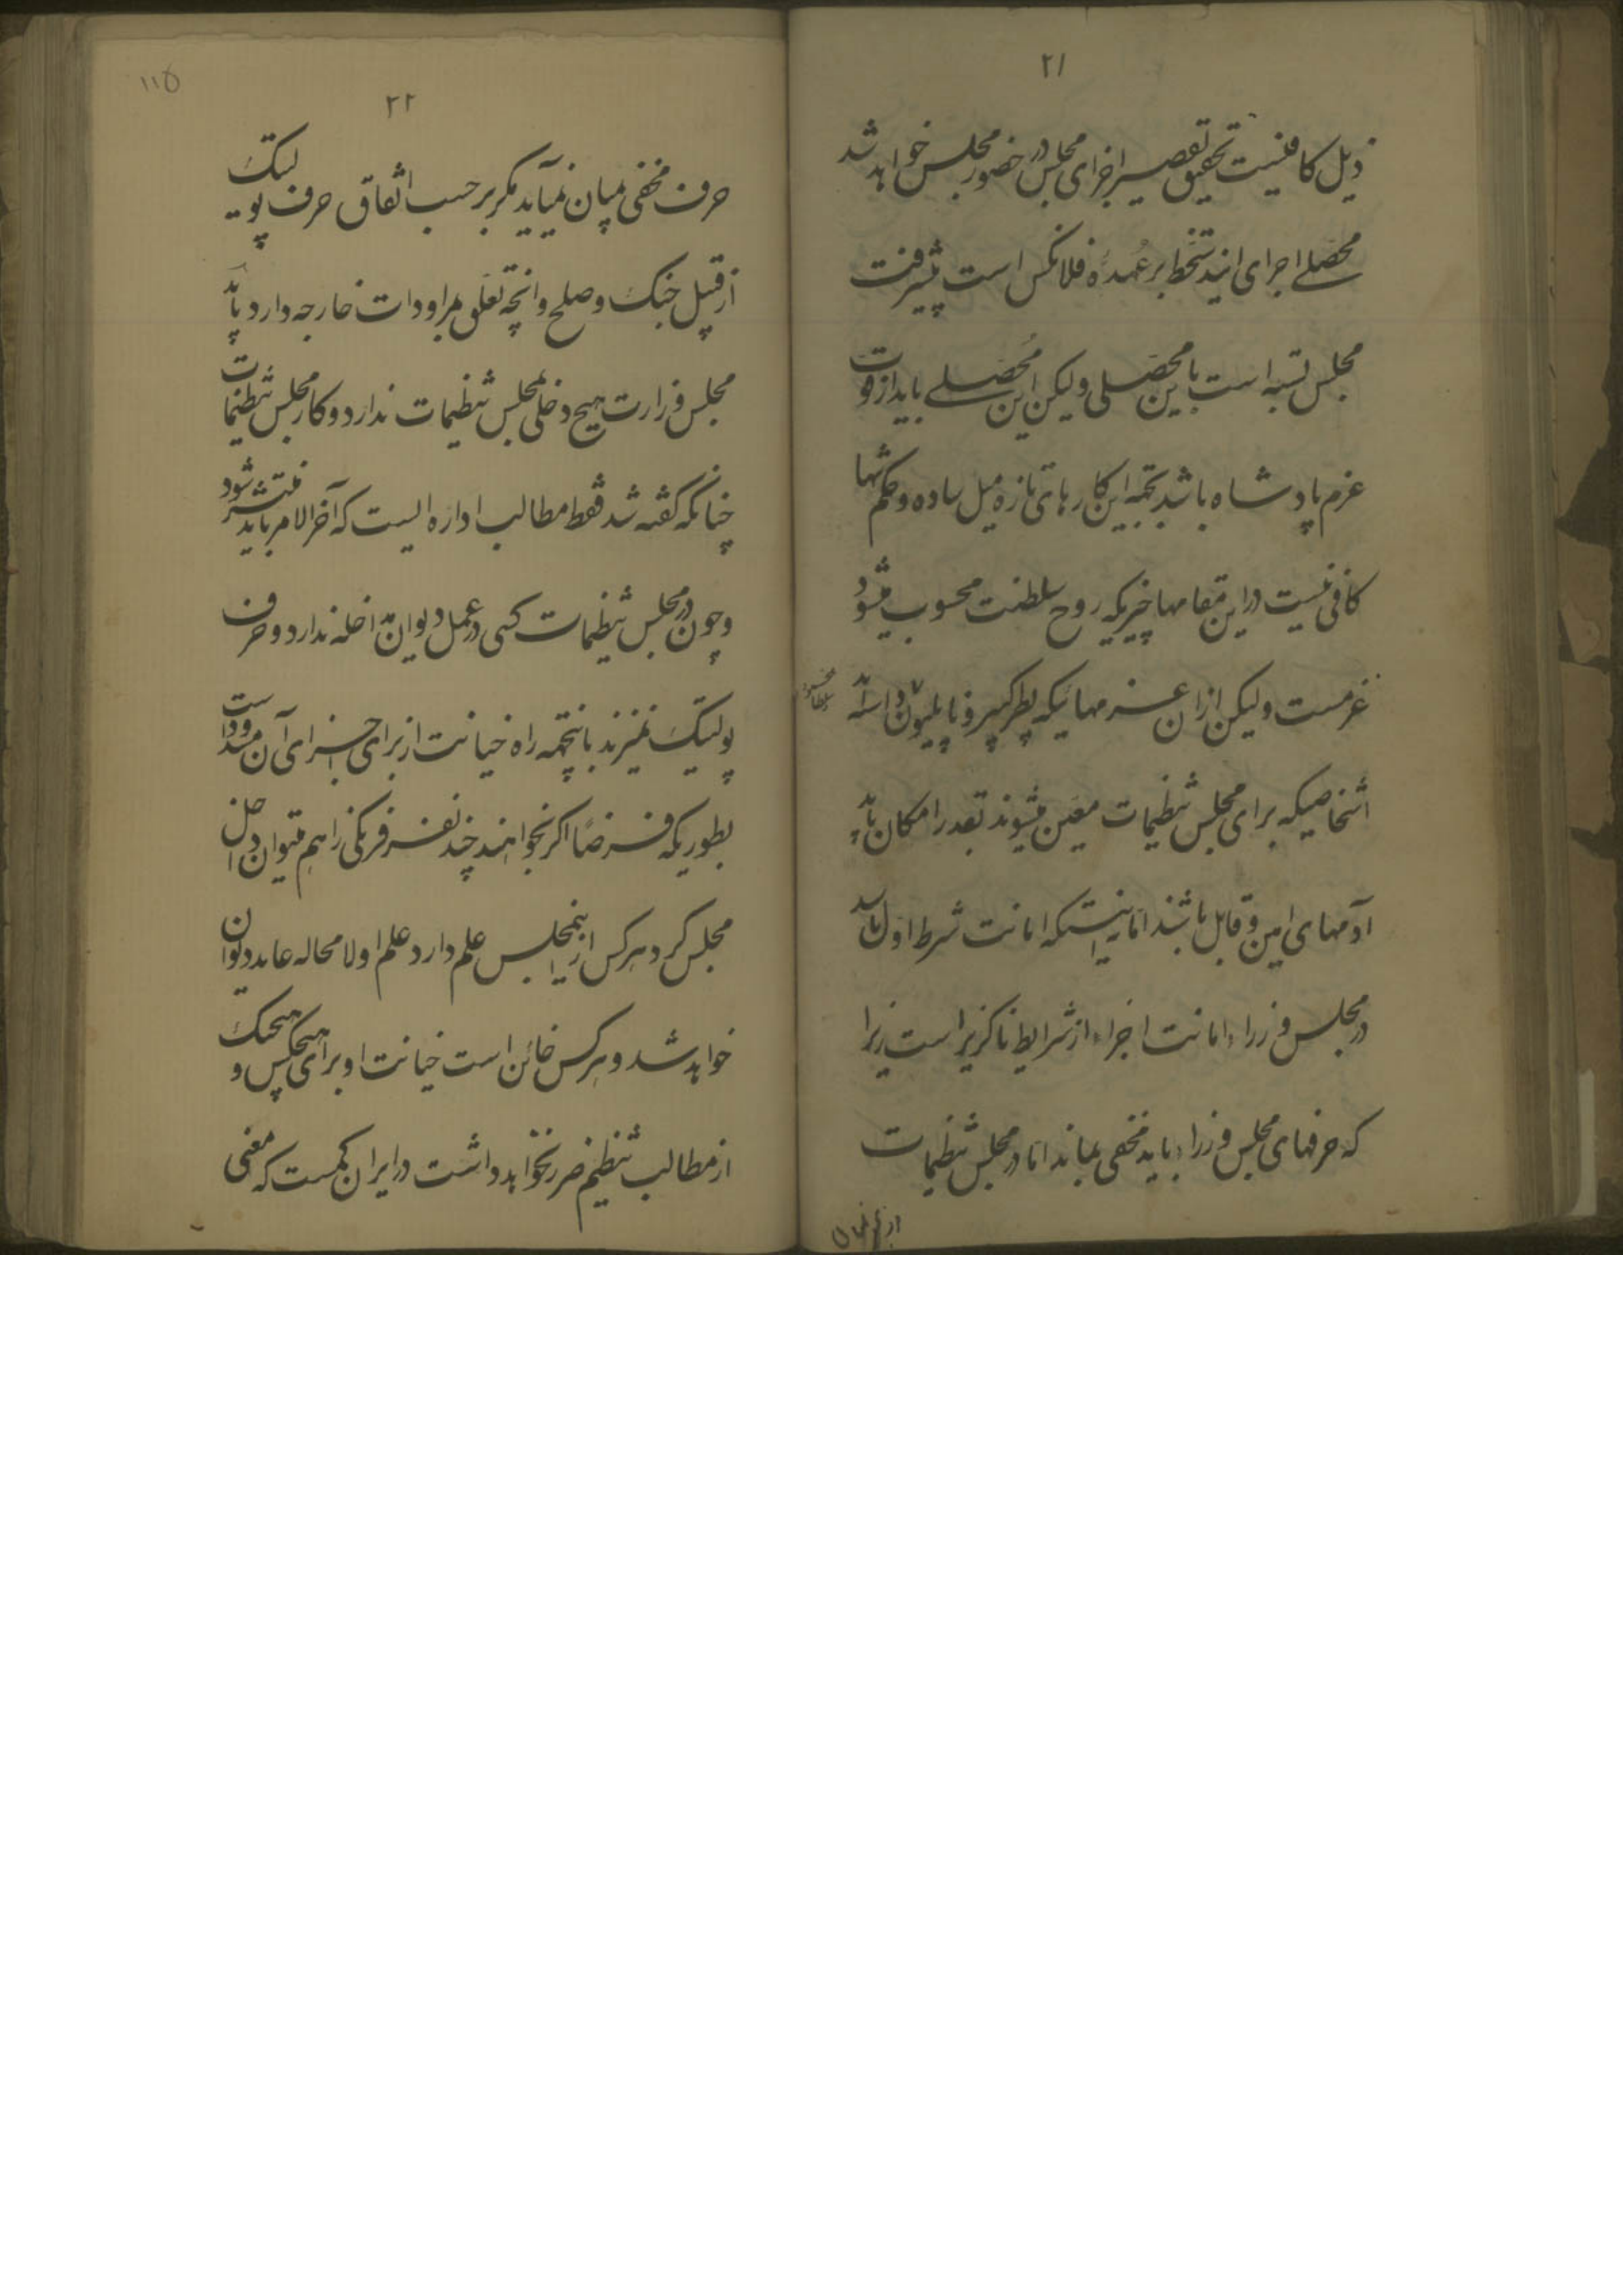 ۲۱
ذیل کافیست تحقیق تقصیر اجزای مجلس در حضور مجلس خواهد شد
محصلے اجرای این دستخط بر عهدهٔ فلانکس است پیشرفت
مجلس بسته است باین محصلی ولیکن این محصلے باید از قوت
عزم پادشاه باشد بجهة این کارهای تازه میل ساده و حکم تنها
کافی نیست در این مقامها چیزیکه روح سلطنت محسوب میشود
عزمست ولیکن از آن عزمهائیکه پطر کبیر و ناپلیون داشته
اشخاصیکه برای مجلس تنظیمات معین میشوند بقدر امکان باید
آدمهای امین و قابل باشند اما نه اینستکه امانت شرط اول باشد
در مجلس وزراء امانت اجزاء از شرایط ناگزیر است زیرا
که حرفهای مجلس وزراء باید مخفی بماند اما در مجلس تنظیمات
۱۱۵
۲۲
حرف مخفی بمیان نمیآید مگر بر حسب اتفاق حرف پولیتیک
از قبیل جنگ و صلح و آنچه تعلق بمراودات خارجه دارد باید
مجلس وزارت هیچ دخلی بمجلس تنظیمات ندارد و کار مجلس تنظیمات
چنانکه گفته شد فقط مطالب اداره ایست که آخر الامر باید منتشر شود
و چون در مجلس تنظیمات کسی در عمل دیوان مداخله ندارد و حرف
پولتیک نمیزند باینجهة راه خیانت از برای اجزای آن مسدود است
بطوریکه فرضاً اگر بخواهند چند نفر فرنگی را هم میتوان داخل
مجلس کرد هرکس از اینمجلس علم دارد علم او لامحاله عاید دیوان
خواهد شد و هرکس خائن است خیانت او برای هیچکس و هیچیک
از مطالب تنظیم ضرر نخواهد داشت در ایران کمست که معنی